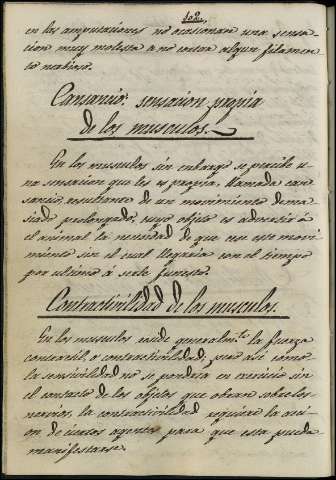 102.
en las amputaciones no ocasionara una sensa-
cion muy molesta a no cortar algun filamen-
to nerbioso.
Cansancio: sensacion propia
de los musculos.
En los musculos sin enbargo se percibe u-
na sensacion que les es propia, llamada can-
sancio, resultante de un movimiento dema-
siado prolongado, cuyo objeto es advertir á
el animal la necesidad de que cese este movi-
miento sin el cual llegaria con el tiempo
por ultimo á serle funesto.
Contractivilidad de los musculos.
En los musculos reside generalmte. la fuerza
contractil, o contractivilidad; pues asi como
la sensivilidad no se pondria en exercicio sin
el contacto de los objetos que obran sobre los
nervios, la contractivilidad requiere la acci-
on de ciertos agentes para que esta pueda
manifestarse.